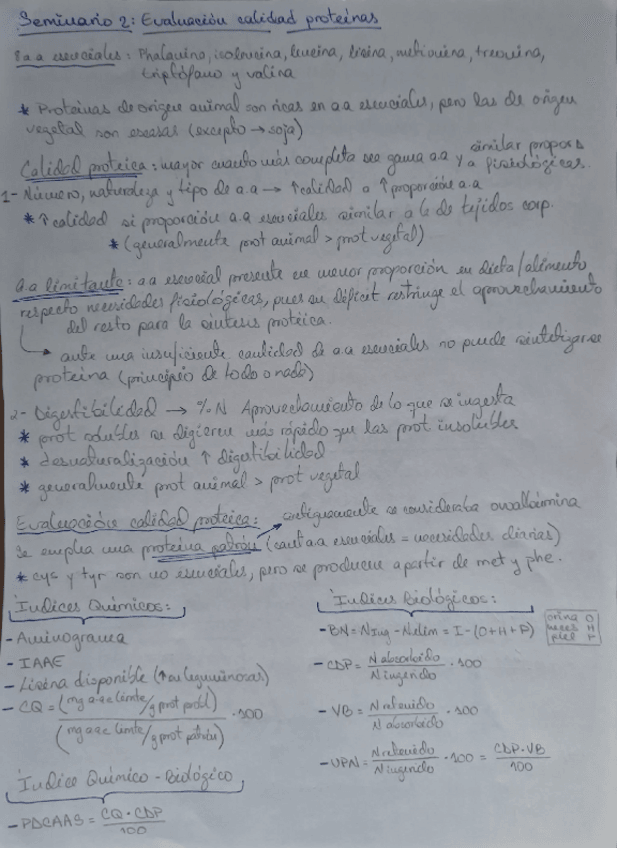 Seminario 2: Evaluación calidad proteínas
8 a a esenciales: Phalanina, isoleucina, leucina, lisina, metionina, treonina,
triptófano y valina
* Proteínas de origen animal son ricas en aa esenciales, pero las de origen
vegetal son escasas (excepto → soja)
Calidad proteica: mayor cuanto más completa sea gama a.a y similar propor. a fisiológicas.
1- Número, naturaleza y tipo de a.a → ↑calidad a ↑proporción a.a
* ↑ calidad si proporción a.a esenciales similar a la de tejidos corp.
* (generalmente prot animal > prot vegetal)
a.a limitante: aa esencial presente en menor proporción en dieta/alimento
respecto necesidades fisiológicas, pues su déficit restringe el aprovechamiento
del resto para la síntesis proteica.
→ ante una insuficiente cantidad de aa esenciales no puede sintetizarse
proteína (principio de todo o nada)
2- Digestibilidad → % N Aprovechamiento de lo que se ingesta
* prot solubles se digieren más rápido que las prot insolubles
* desnaturalización ↑ digestibilidad
* generalmente prot animal > prot vegetal
Evaluación calidad proteica: antiguamente se consideraba ovoalbúmina
Se emplea una proteína patrón (cant aa esenciales = necesidades diarias)
* cys y tyr son no esenciales, pero se producen a partir de met y phe.
Índices Químicos:
- Aminograma
- IAAE
- Lisina disponible (↑ en leguminosas)
- CQ = (mg aae limte/g prot probl) / (mg aae limte/g prot patrón) · 100
Índice Químico - Biológico
- PDCAAS = CQ · CDP / 100
Índices Biológicos:
- BN = N ing - N elim = I - (O + H + P)
orina O
heces H
piel P
- CDP = N absorbido / N ingerido · 100
- VB = N retenido / N absorbido · 100
- UPN = N retenido / N ingerido · 100 = CDP · VB / 100